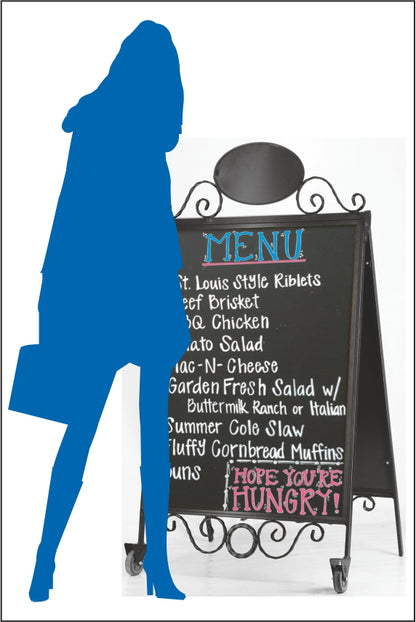 MENU
St. Louis Style Riblets
eef Brisket
Q Chicken
ato Salad
ac-N-Cheese
Garden Fresh Salad w/
Buttermilk Ranch or Italian
Summer Cole Slaw
Fluffy Cornbread Muffins
uns
HOPE YOU'RE
HUNGRY!